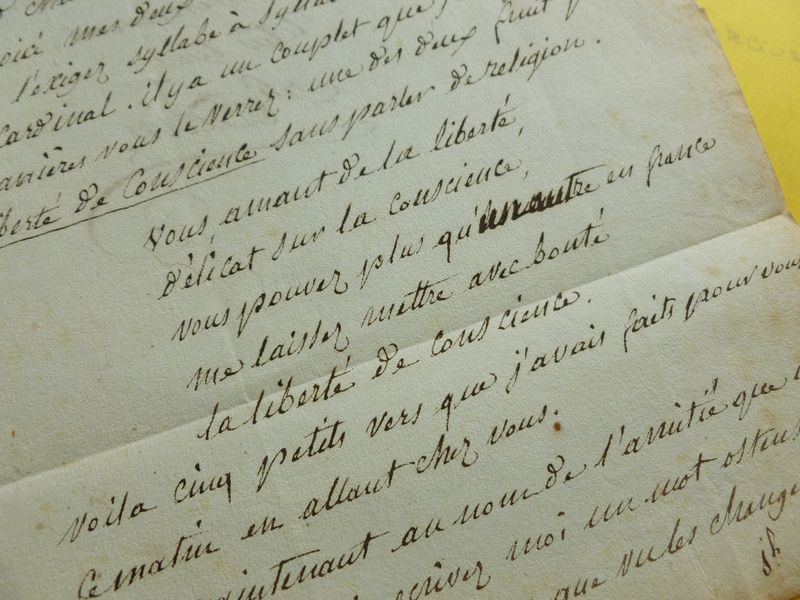 mes deux
l'exiger syllabe à syllabe
Cardinal. il y a un couplet que
vous le verrez : une des deux
liberté de Conscience sans parler de religion.
Vous, amant de la liberté,
délicat sur la conscience,
vous pouvez plus qu'un autre en france
me laisser mettre avec bonté
la liberté de conscience.
voila cinq petits vers que j'avais faits pour vous
ce matin en allant chez vous.
maintenant au nom de l'amitié que
écrivez moi un mot
que vu les